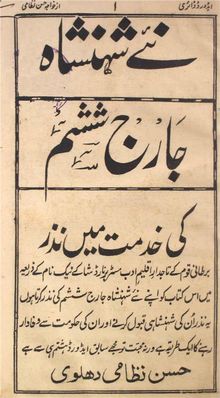 ایڈورڈ ڈائری ۱ از خواجہ حسن نظامی
نئے شہنشاہ
جارج ششم
کی خدمت میں نذر
برطانی قوم کے تاجدار اقلیم ادب مسٹر برنارڈ شا کے نیک نام کے ذریعہ
میں اس کتاب کو اپنے نئے شہنشاہ جارج ششم کی نذر کرتا ہوں
یہ نذر ان کی شہنشاہی قبول کرنے اور ان کی حکومت سے وفادار
رہنے کا ایک طریقہ ہے ورنہ محبت تو مجھے سابق ایڈورڈ ہشتم ہی سے ہے
حسن نظامی دھلوی